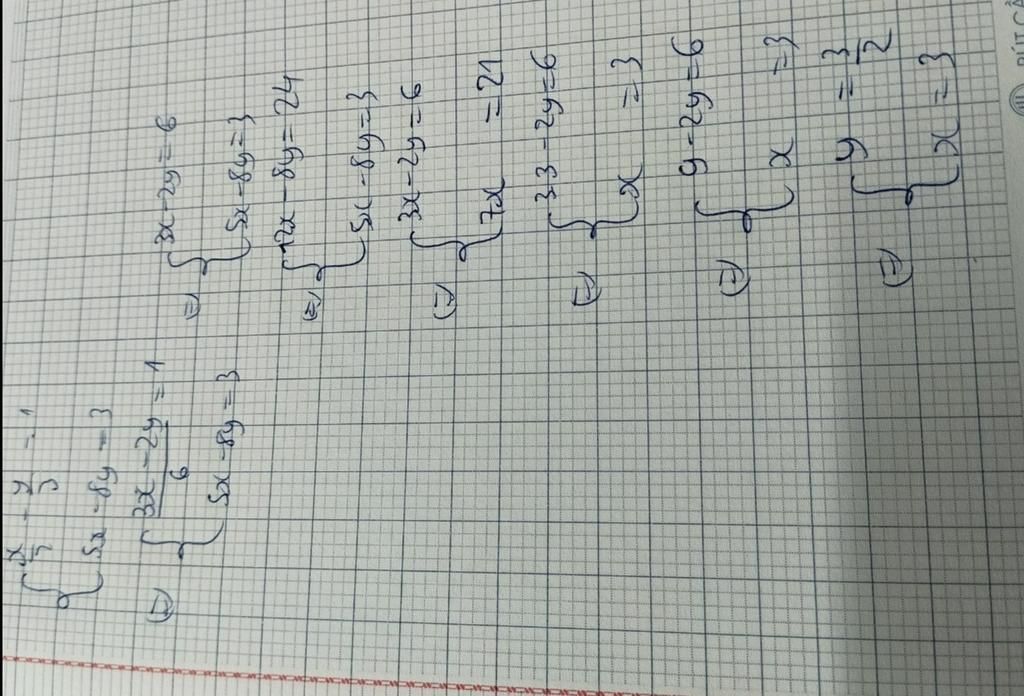 { x/2 - y/3 = 1
5x - 8y = 3
(=) { (3x - 2y)/6 = 1
5x - 8y = 3
(=) { 3x - 2y = 6
5x - 8y = 3
(=) { 12x - 8y = 24
5x - 8y = 3
(=) { 3x - 2y = 6
7x = 21
(=) { 3.3 - 2y = 6
x = 3
(=) { 9 - 2y = 6
x = 3
(=) { y = 3/2
x = 3